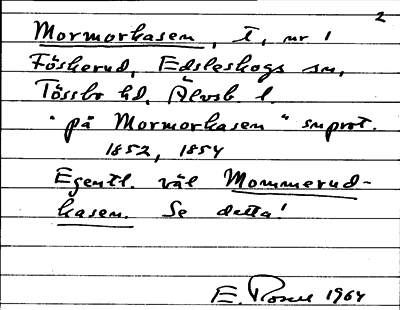 2
Mormorkasen, T, nr 1
Föskerud, Edsleskogs sn,
Tössbo hd, Älvsb. l.
"på Mormorkasen" snprot.
1852, 1854
Egentl. väl Mommerud-
kasen. Se detta!
E. Rosell 1964